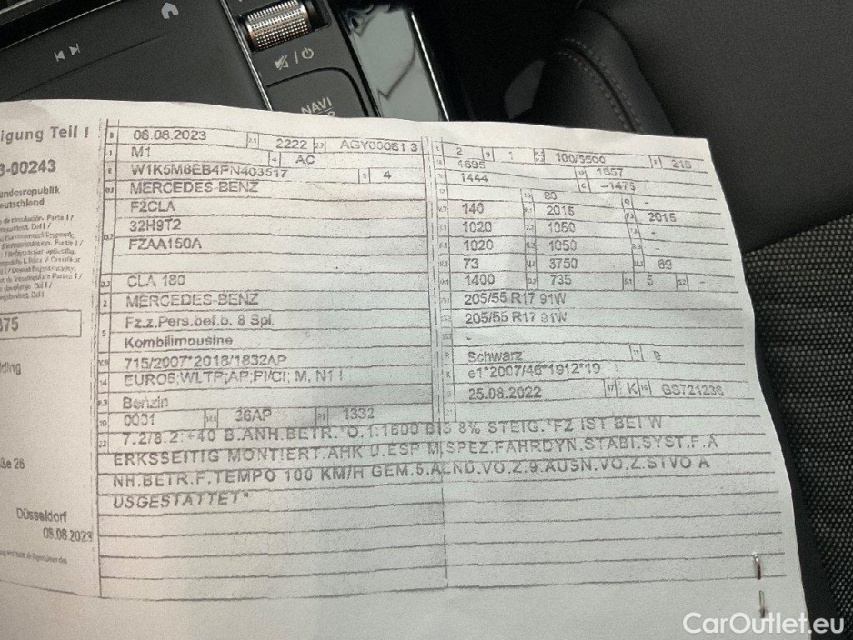 NAVI
igung Teil I
08.08.2023 2222 AGY000613
2 1 100/5500 216
3-00243
M1 AC
1695 1557
W1K5M8EB4PN403517 4
1444 -1475
undesrepublik
eutschland
MERCEDES-BENZ
80 -
F2CLA
140 2015 2015
32H9T2
1020 1050 -
FZAA150A
1020 1050 -
73 3750 69
CLA 180
1400 735 5 -
MERCEDES-BENZ
205/55 R17 91W
375
Fz.z.Pers.bef.b. 8 Spl.
205/55 R17 91W
Kombilimousine
-
715/2007*2018/1832AP
Schwarz 9
EURO6;WLTP;AP;PI/CI; M, N1 I
e1*2007/46*1912*19
Benzin
25.08.2022 K GS721236
0001 36AP 1332
7.2/8.2:+40 B.ANH.BETR.*O.1:1600 BIS 8% STEIG.*FZ IST BEI W
ERKSSEITIG MONTIERT.AHK U.ESP M.SPEZ.FAHRDYN.STABI.SYST.F.A
NH.BETR.F.TEMPO 100 KM/H GEM.5.AEND.VO.Z.9.AUSN.VO.Z.STVO A
USGESTATTET*
ße 26
Düsseldorf
08.08.2023
CarOutlet.eu